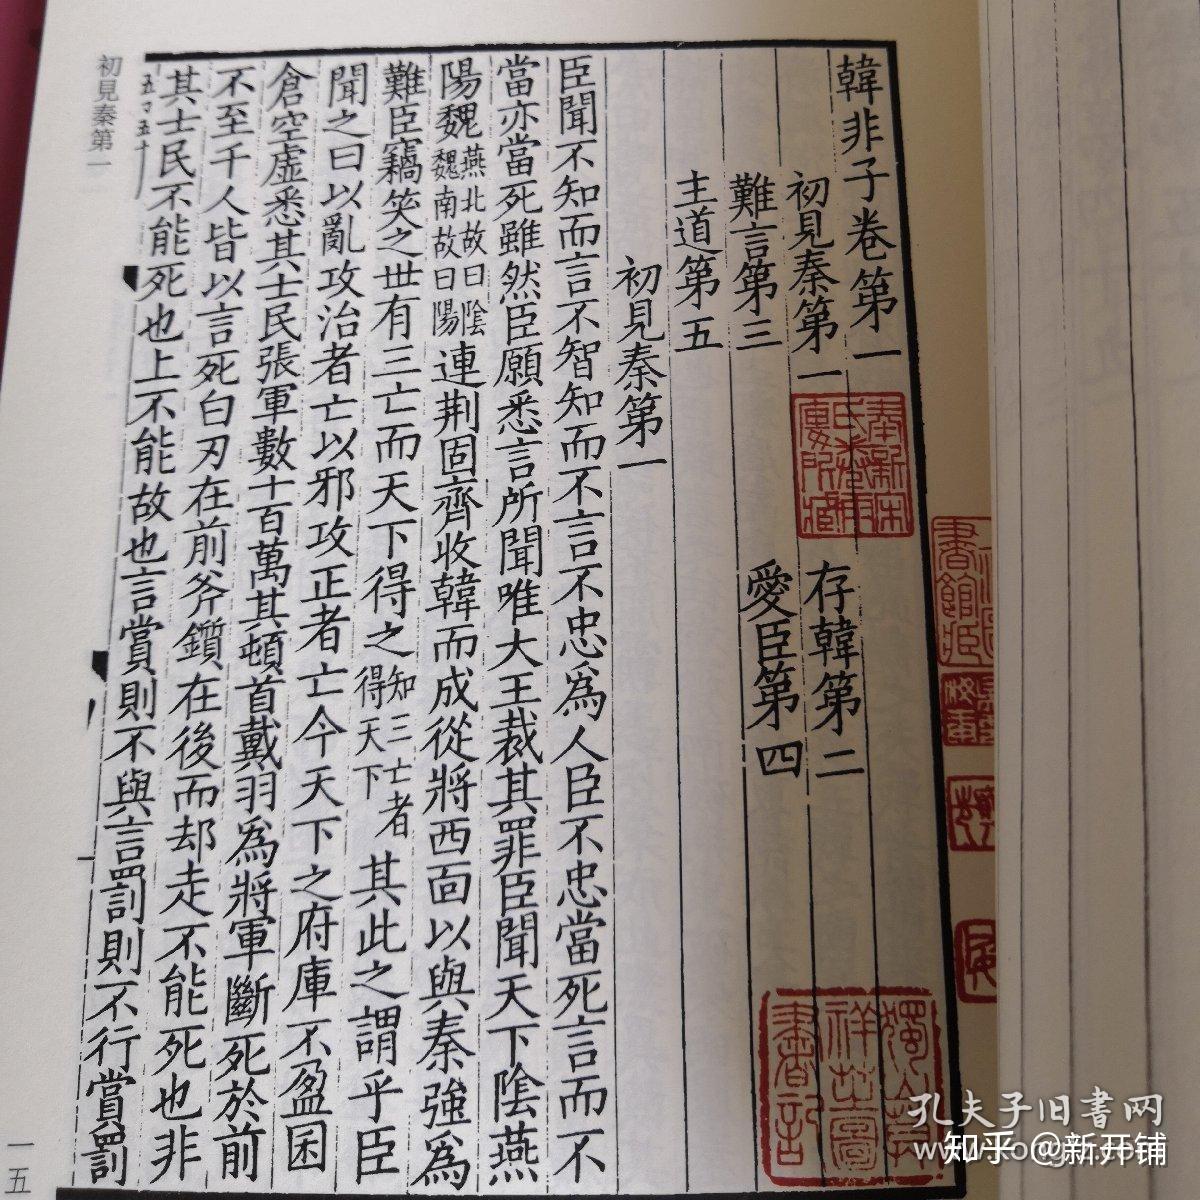 韓非子卷第一
初見秦第一　存韓第二
難言第三　愛臣第四
主道第五
初見秦第一
臣聞不知而言不智知而不言不忠爲人臣不忠當死言而不
當亦當死雖然臣願悉言所聞唯大王裁其罪臣聞天下陰燕
陽魏燕北故曰陰魏南故曰陽連荆固齊收韓而成從將西面以與秦強爲
難臣竊笑之世有三亡而天下得之知三亡者得天下其此之謂乎臣
聞之曰以亂攻治者亡以邪攻正者亡今天下之府庫不盈囷
倉空虛悉其士民張軍數十百萬其頓首戴羽爲將軍斷死於前
不至千人皆以言死白刃在前斧鑕在後而却走不能死也非
其士民不能死也上不能故也言賞則不與言罰則不行賞罰
初見秦第一
一五
奉新宋氏卷雨廔所藏
書館藏
孔夫子旧书网
知乎 @新开铺